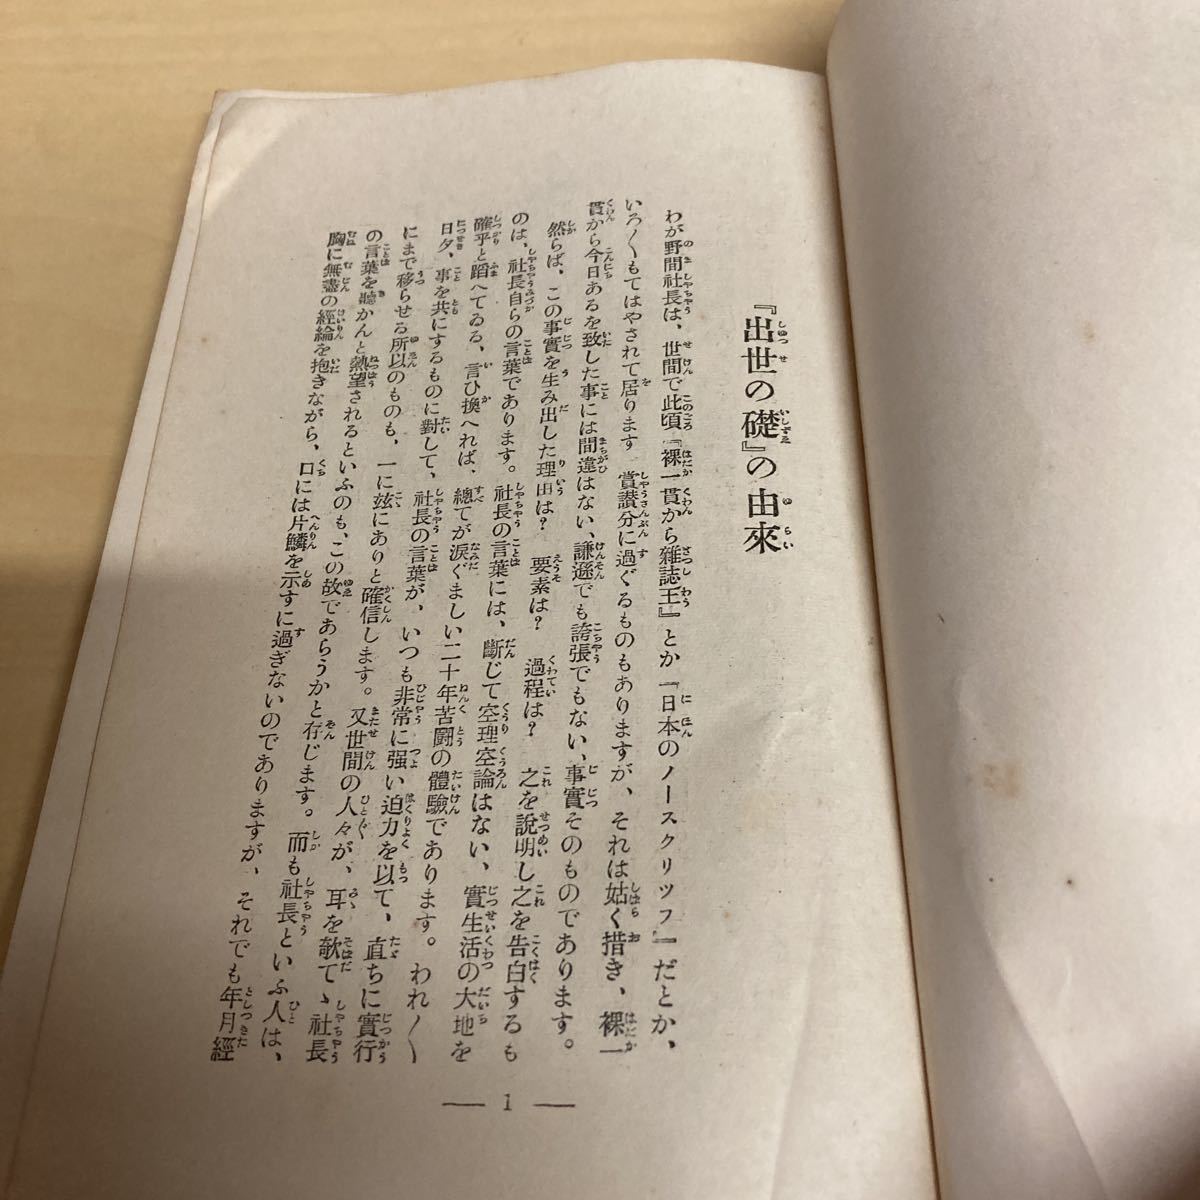 『出世の礎』の由來
わが野間社長は、世間で此頃『裸一貫から雜誌王』とか『日本のノースクリツフ』だとか、
いろ〳〵もてはやされて居ります 賞讃分に過ぐるものもありますが、それは姑く措き、裸一
貫から今日あるを致した事には間違はない、謙遜でも誇張でもない、事實そのものであります。
然らば、この事實を生み出した理由は? 要素は? 過程は? 之を說明し之を告白するも
のは、社長自らの言葉であります。社長の言葉には、斷じて空理空論はない、實生活の大地を
確乎と蹈へてゐる、言ひ換へれば、總てが淚ぐましい二十年苦鬪の體驗であります。われ〳〵
日夕、事を共にするものに對して、社長の言葉が、いつも非常に强い迫力を以て、直ちに實行
にまで移らせる所以のものも、一に玆にありと確信します。又世間の人々が、耳を欹てゝ社長
の言葉を聽かんと熱望されるといふのも、この故であらうかと存じます。而も社長といふ人は、
胸に無盡の經綸を抱きながら、口には片鱗を示すに過ぎないのでありますが、それでも年月經
— 1 —